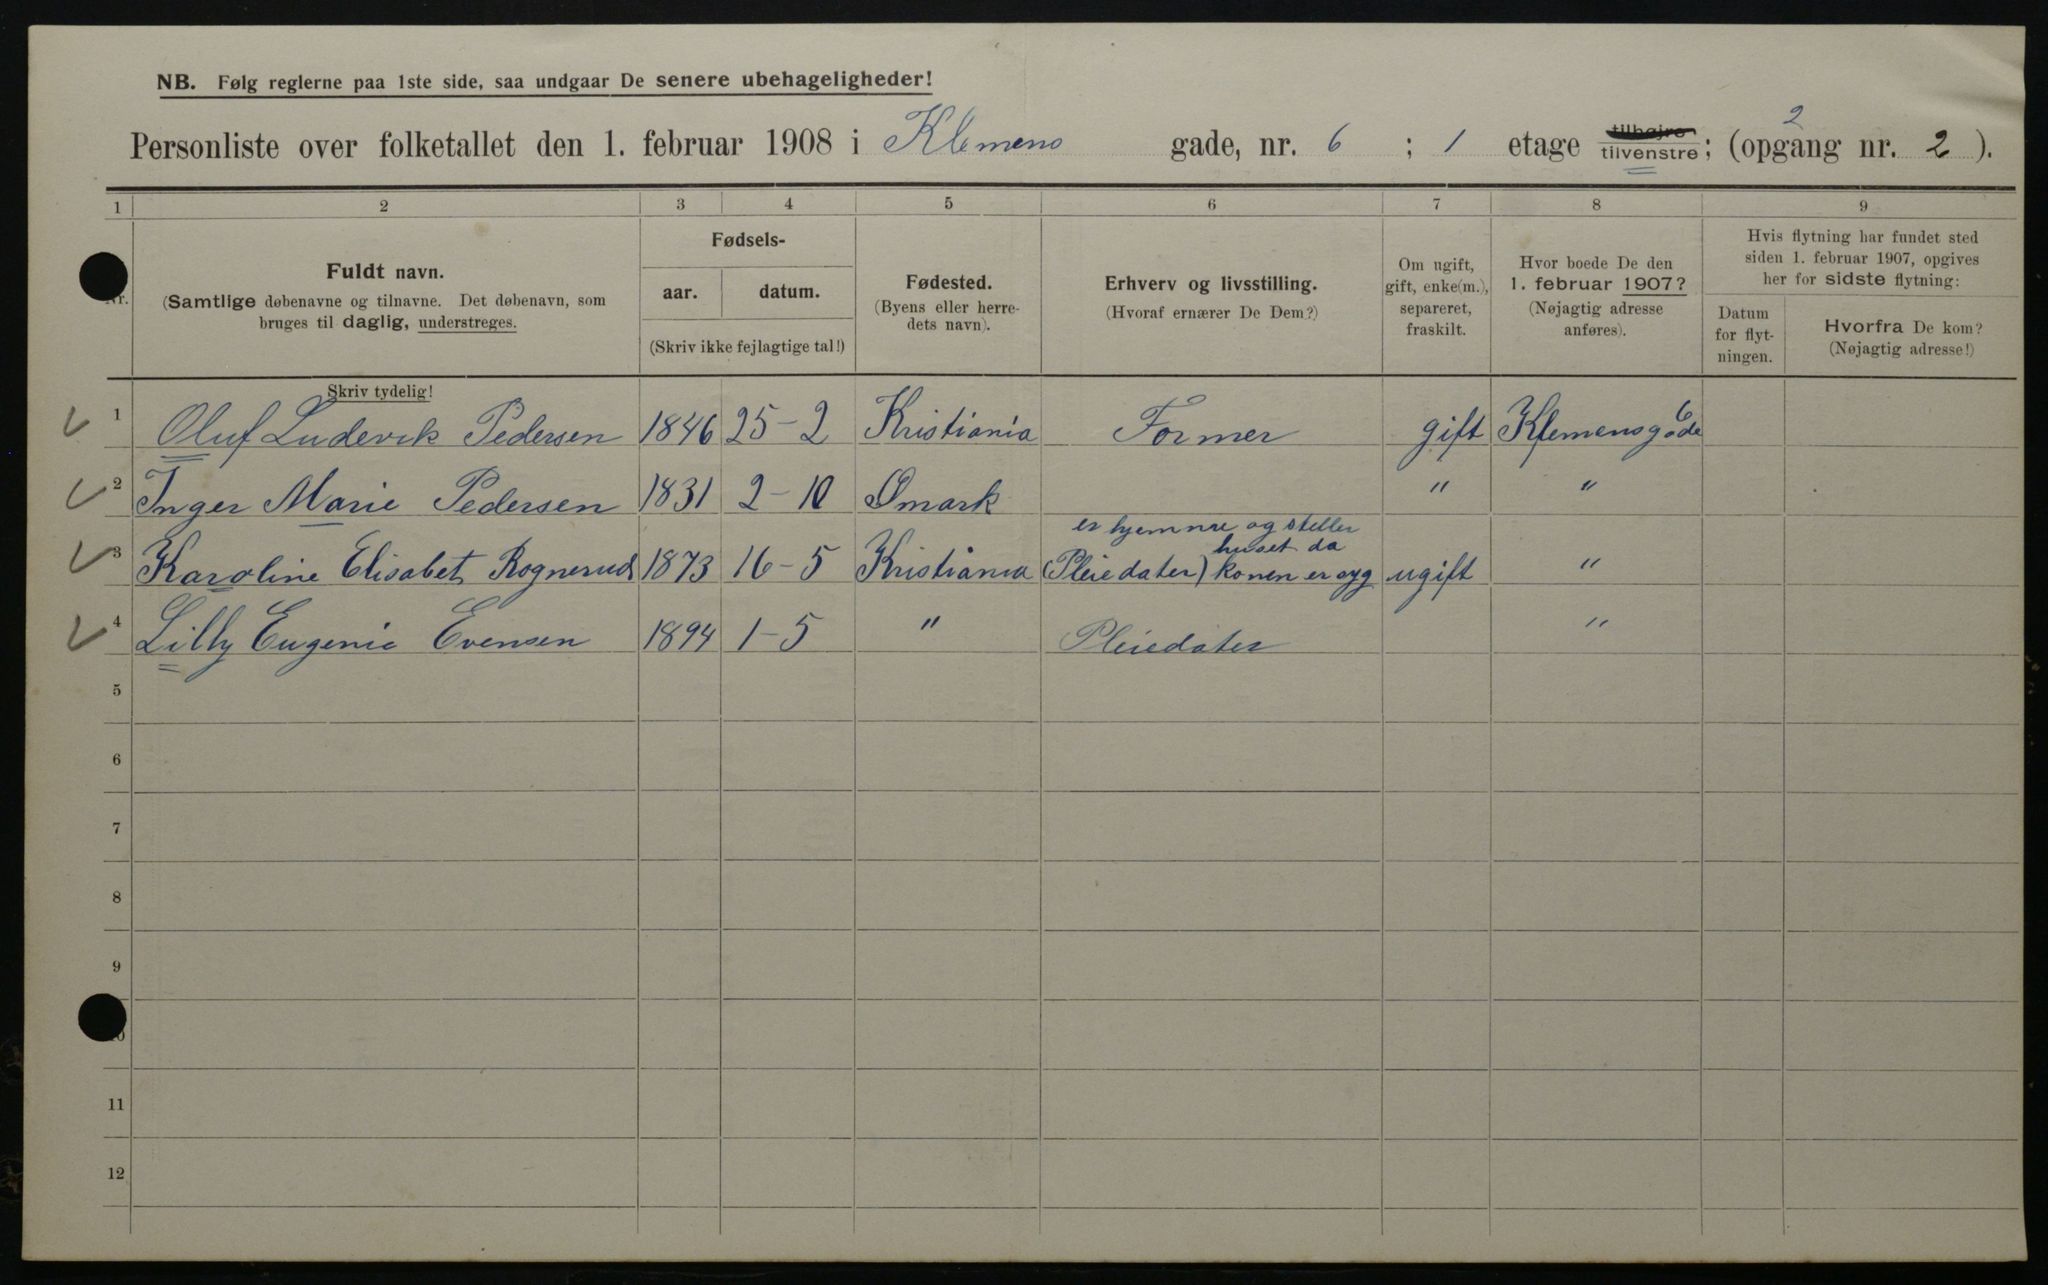 NB. Følg reglerne paa 1ste side, saa undgaar De senere ubehageligheder!
Personliste over folketallet den 1. februar 1908 i Klemens gade, nr. 6 ; 1 etage tilhøjre tilvenstre; (opgang nr. 2 2 ).
1 2 3 4 5 6 7 8 9
Nr.
Fuldt navn.
(Samtlige døbenavne og tilnavne. Det døbenavn, som
bruges til daglig, understreges.
Fødsels-
aar. datum.
(Skriv ikke fejlagtige tal!)
Fødested.
(Byens eller herre-
dets navn).
Erhverv og livsstilling.
(Hvoraf ernærer De Dem?)
Om ugift,
gift, enke(m.),
separeret,
fraskilt.
Hvor boede De den
1. februar 1907?
(Nøjagtig adresse
anføres).
Hvis flytning har fundet sted
siden 1. februar 1907, opgives
her for sidste flytning:
Datum
for flyt-
ningen.
Hvorfra De kom?
(Nøjagtig adresse!)
Skriv tydelig!
1 Oluf Ludevik Pedersen 1846 25-2 Kristiania Former gift Klemensgade 6
2 Inger Marie Pedersen 1831 2-10 Ømark " "
er hjemme og steller
huset da
3 Karoline Elisabet Rognerud 1873 16-5 Kristiania (Pleiedater) konen er syg ugift "
4 Lilly Eugenie Evensen 1894 1-5 " Pleiedater "
5
6
7
8
9
10
11
12